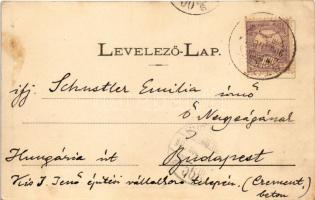 LEVELEZŐ-LAP.
ifj. Schustler Emilia úrnő
Ő Nagyságának
Hungária út Budapest
Kis J. Jenő építési vállalkozó telepén. (Crement,)
beton